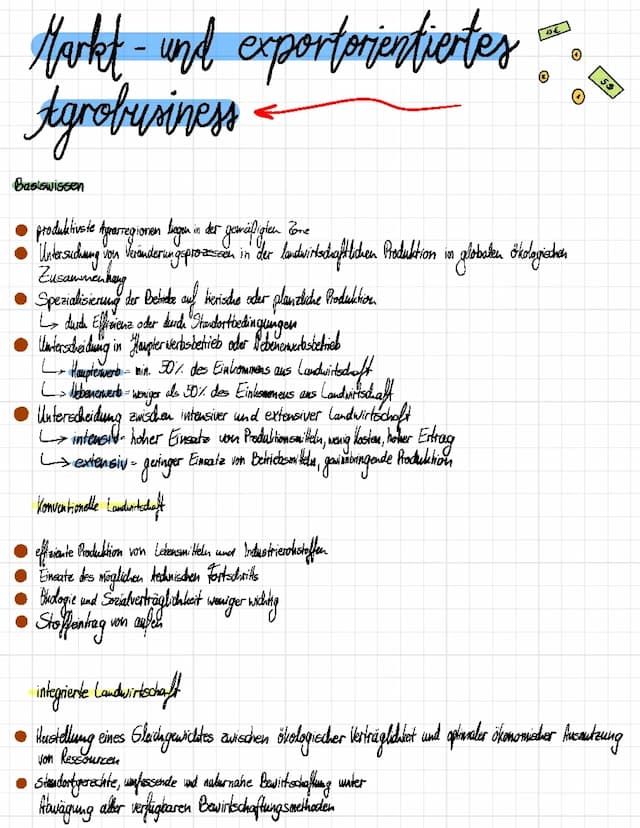 Markt - und exportorientiertes
Agrobusiness
Basiswissen
produktivste Agrarregionen liegen in der gemäßigten Zone
Untersuchung von Veränderungsprozessen in der landwirtschaftlichen Produktion im globalen ökologischen
Zusammenhang
Spezialisierung der Betriebe auf tierische oder planzliche Produktion
↳ durch Effizienz oder durch Standortbedingungen
Unterscheidung in Haupterwerbsbetrieb oder Nebenerwerbsbetrieb
↳ Haupterwerb = min. 50% des Einkommens aus Landwirtschaft
↳ Nebenerwerb = weniger als 50% des Einkommens aus Landwirtschaft
Unterscheidung zwischen intensiver und extensiver Landwirtschaft
↳ intensiv = hoher Einsatz von Produktionsmitteln, wenig Kosten, hoher Ertrag
↳ extensiv = geringer Einsatz von Betriebsmitteln, gewinnbringende Produktion
Konventionelle Landwirtschaft
effiziente Produktion von Lebensmitteln und Industrierohstoffen
Einsatz des möglichen technischen Fortschritts
Ökologie und Sozialverträglichkeit weniger wichtig
Stoffeintrag von außen
integrierte Landwirtschaft
Herstellung eines Gleichgewichtes zwischen ökologischer Verträglichkeit und optimaler ökonomischer Ausnutzung
von Ressourcen
Standortgerechte, umfassende und naturnahe Bewirtschaftung unter
Abwägung aller verfügbaren Bewirtschaftungsmethoden